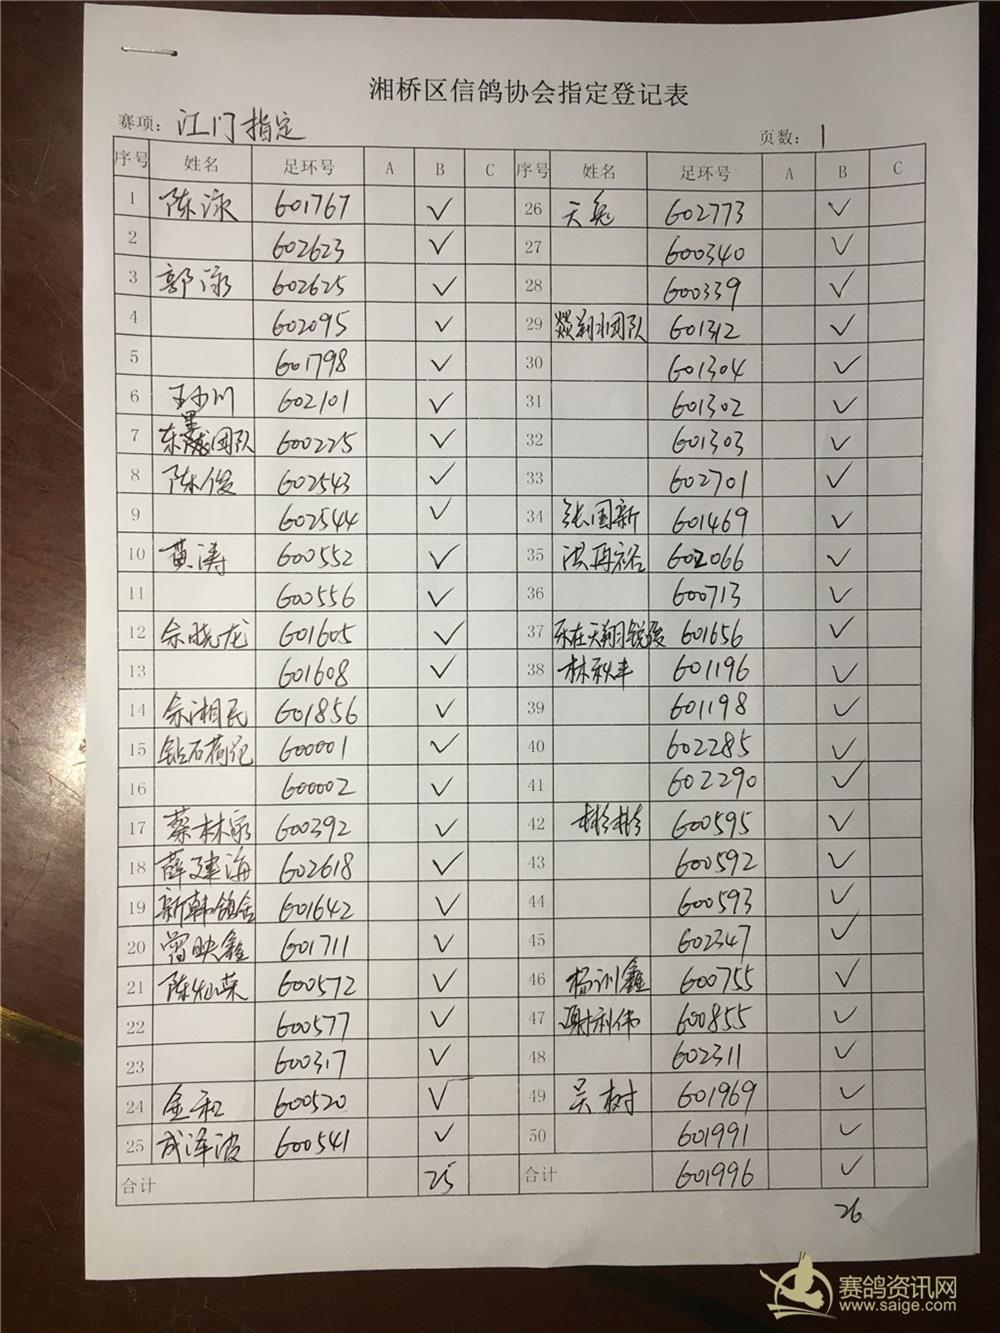 湘桥区信鸽协会指定登记表
赛项: 江门指定 页数: 1
序号 姓名 足环号 A B C 序号 姓名 足环号 A B C
1 陈泳 601767 ✓ 26 天兔 602773 ✓
2 602623 ✓ 27 600340 ✓
3 郭泳 602625 ✓ 28 600339 ✓
4 602095 ✓ 29 翔水团队 601312 ✓
5 601798 ✓ 30 601304 ✓
6 王小川 602101 ✓ 31 601302 ✓
7 东墨团队 600225 ✓ 32 601303 ✓
8 陈俊 602543 ✓ 33 602701 ✓
9 602544 ✓ 34 张国新 601469 ✓
10 黄涛 600552 ✓ 35 洪再裕 602066 ✓
11 600556 ✓ 36 600713 ✓
12 余晓龙 601605 ✓ 37 乐在天翔锐骏 601656 ✓
13 601608 ✓ 38 林秋丰 601196 ✓
14 余湘民 601856 ✓ 39 601198 ✓
15 钻石荷花 600001 ✓ 40 602285 ✓
16 600002 ✓ 41 602290 ✓
17 蔡林泉 600392 ✓ 42 彬彬 600595 ✓
18 薛建海 602618 ✓ 43 600592 ✓
19 新韩鸽舍 601642 ✓ 44 600593 ✓
20 曾映鑫 601711 ✓ 45 602347 ✓
21 陈灿荣 600572 ✓ 46 杨训鑫 600755 ✓
22 600577 ✓ 47 谢利伟 600855 ✓
23 600317 ✓ 48 602311 ✓
24 金和 600520 ✓ 49 吴树 601969 ✓
25 成泽波 600541 ✓ 50 601991 ✓
合计 25 合计 601996 ✓
26
赛鸽资讯网
www.saige.com